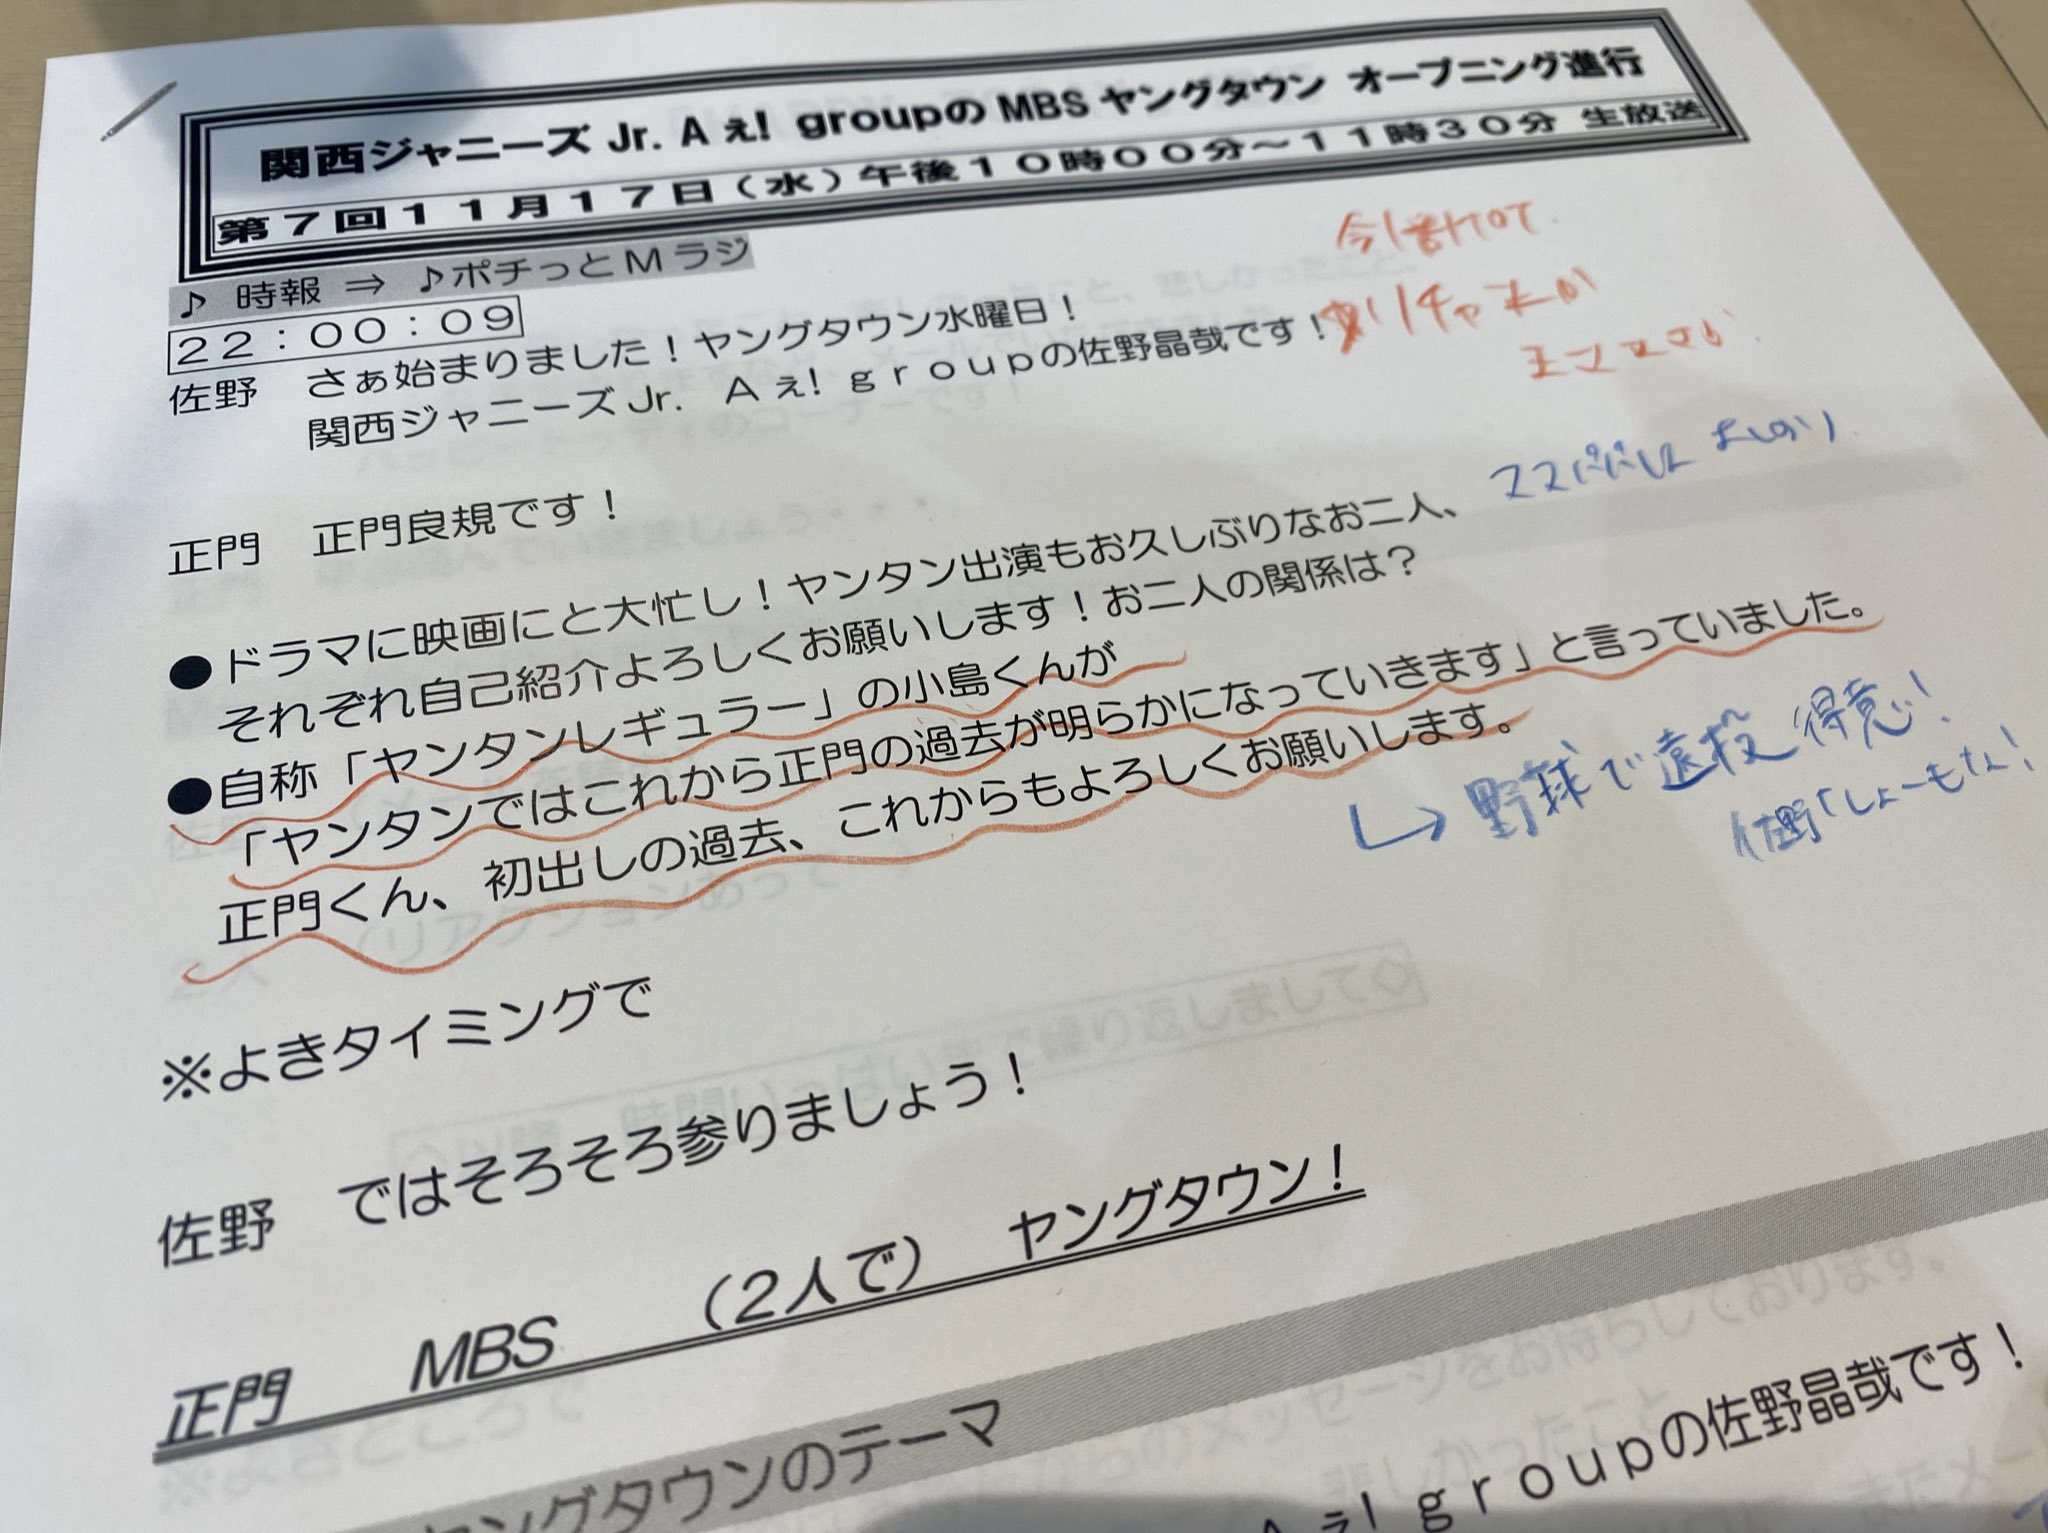 関西ジャニーズ Jr. Aぇ! groupの MBS ヤングタウン オープニング進行
第7回11月17日(水)午後10時00分~11時30分 生放送
♪ 時報 ⇒ ♪ポチっとMラジ
22:00:09
佐野 さぁ始まりました!ヤングタウン水曜日!
関西ジャニーズJr. Aぇ! groupの佐野晶哉です!
正門 正門良規です!
●ドラマに映画にと大忙し!ヤンタン出演もお久しぶりなお二人、
それぞれ自己紹介よろしくお願いします!お二人の関係は?
●自称「ヤンタンレギュラー」の小島くんが
「ヤンタンではこれから正門の過去が明らかになっていきます」と言っていました。
正門くん、初出しの過去、これからもよろしくお願いします。
→野球で遠投得意!
佐野「しょーもな!
※よきタイミングで
佐野 ではそろそろ参りましょう!
正門 MBS (2人で) ヤングタウン!
ヤングタウンのテーマ
Aぇ! groupの佐野晶哉です!